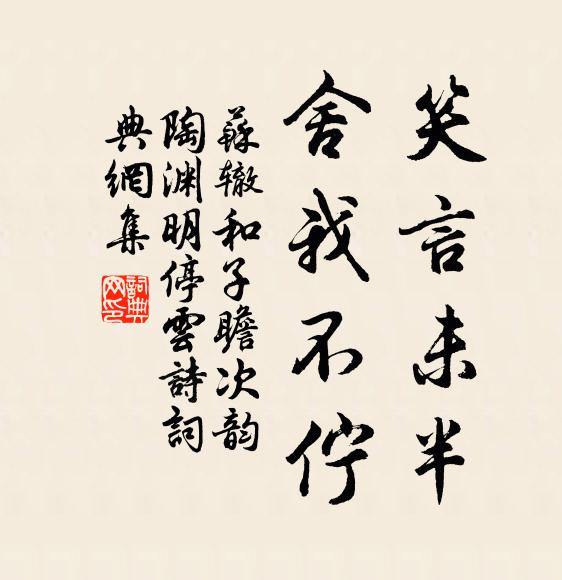 笑言未半
舍我不佇
蘇辙和子瞻次韵
陶渊明停雲詩詞
典網集
詞典网印